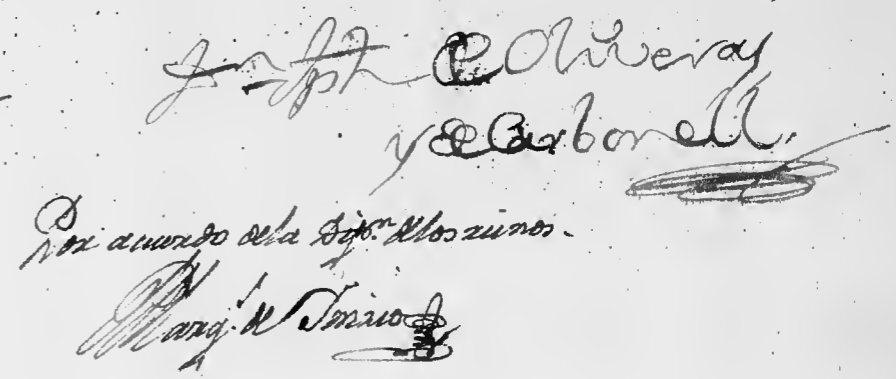 Jph de Oliveras
y de Carbonell.
Por acuerdo de la Dip.on de los reinos.
Marq.s de